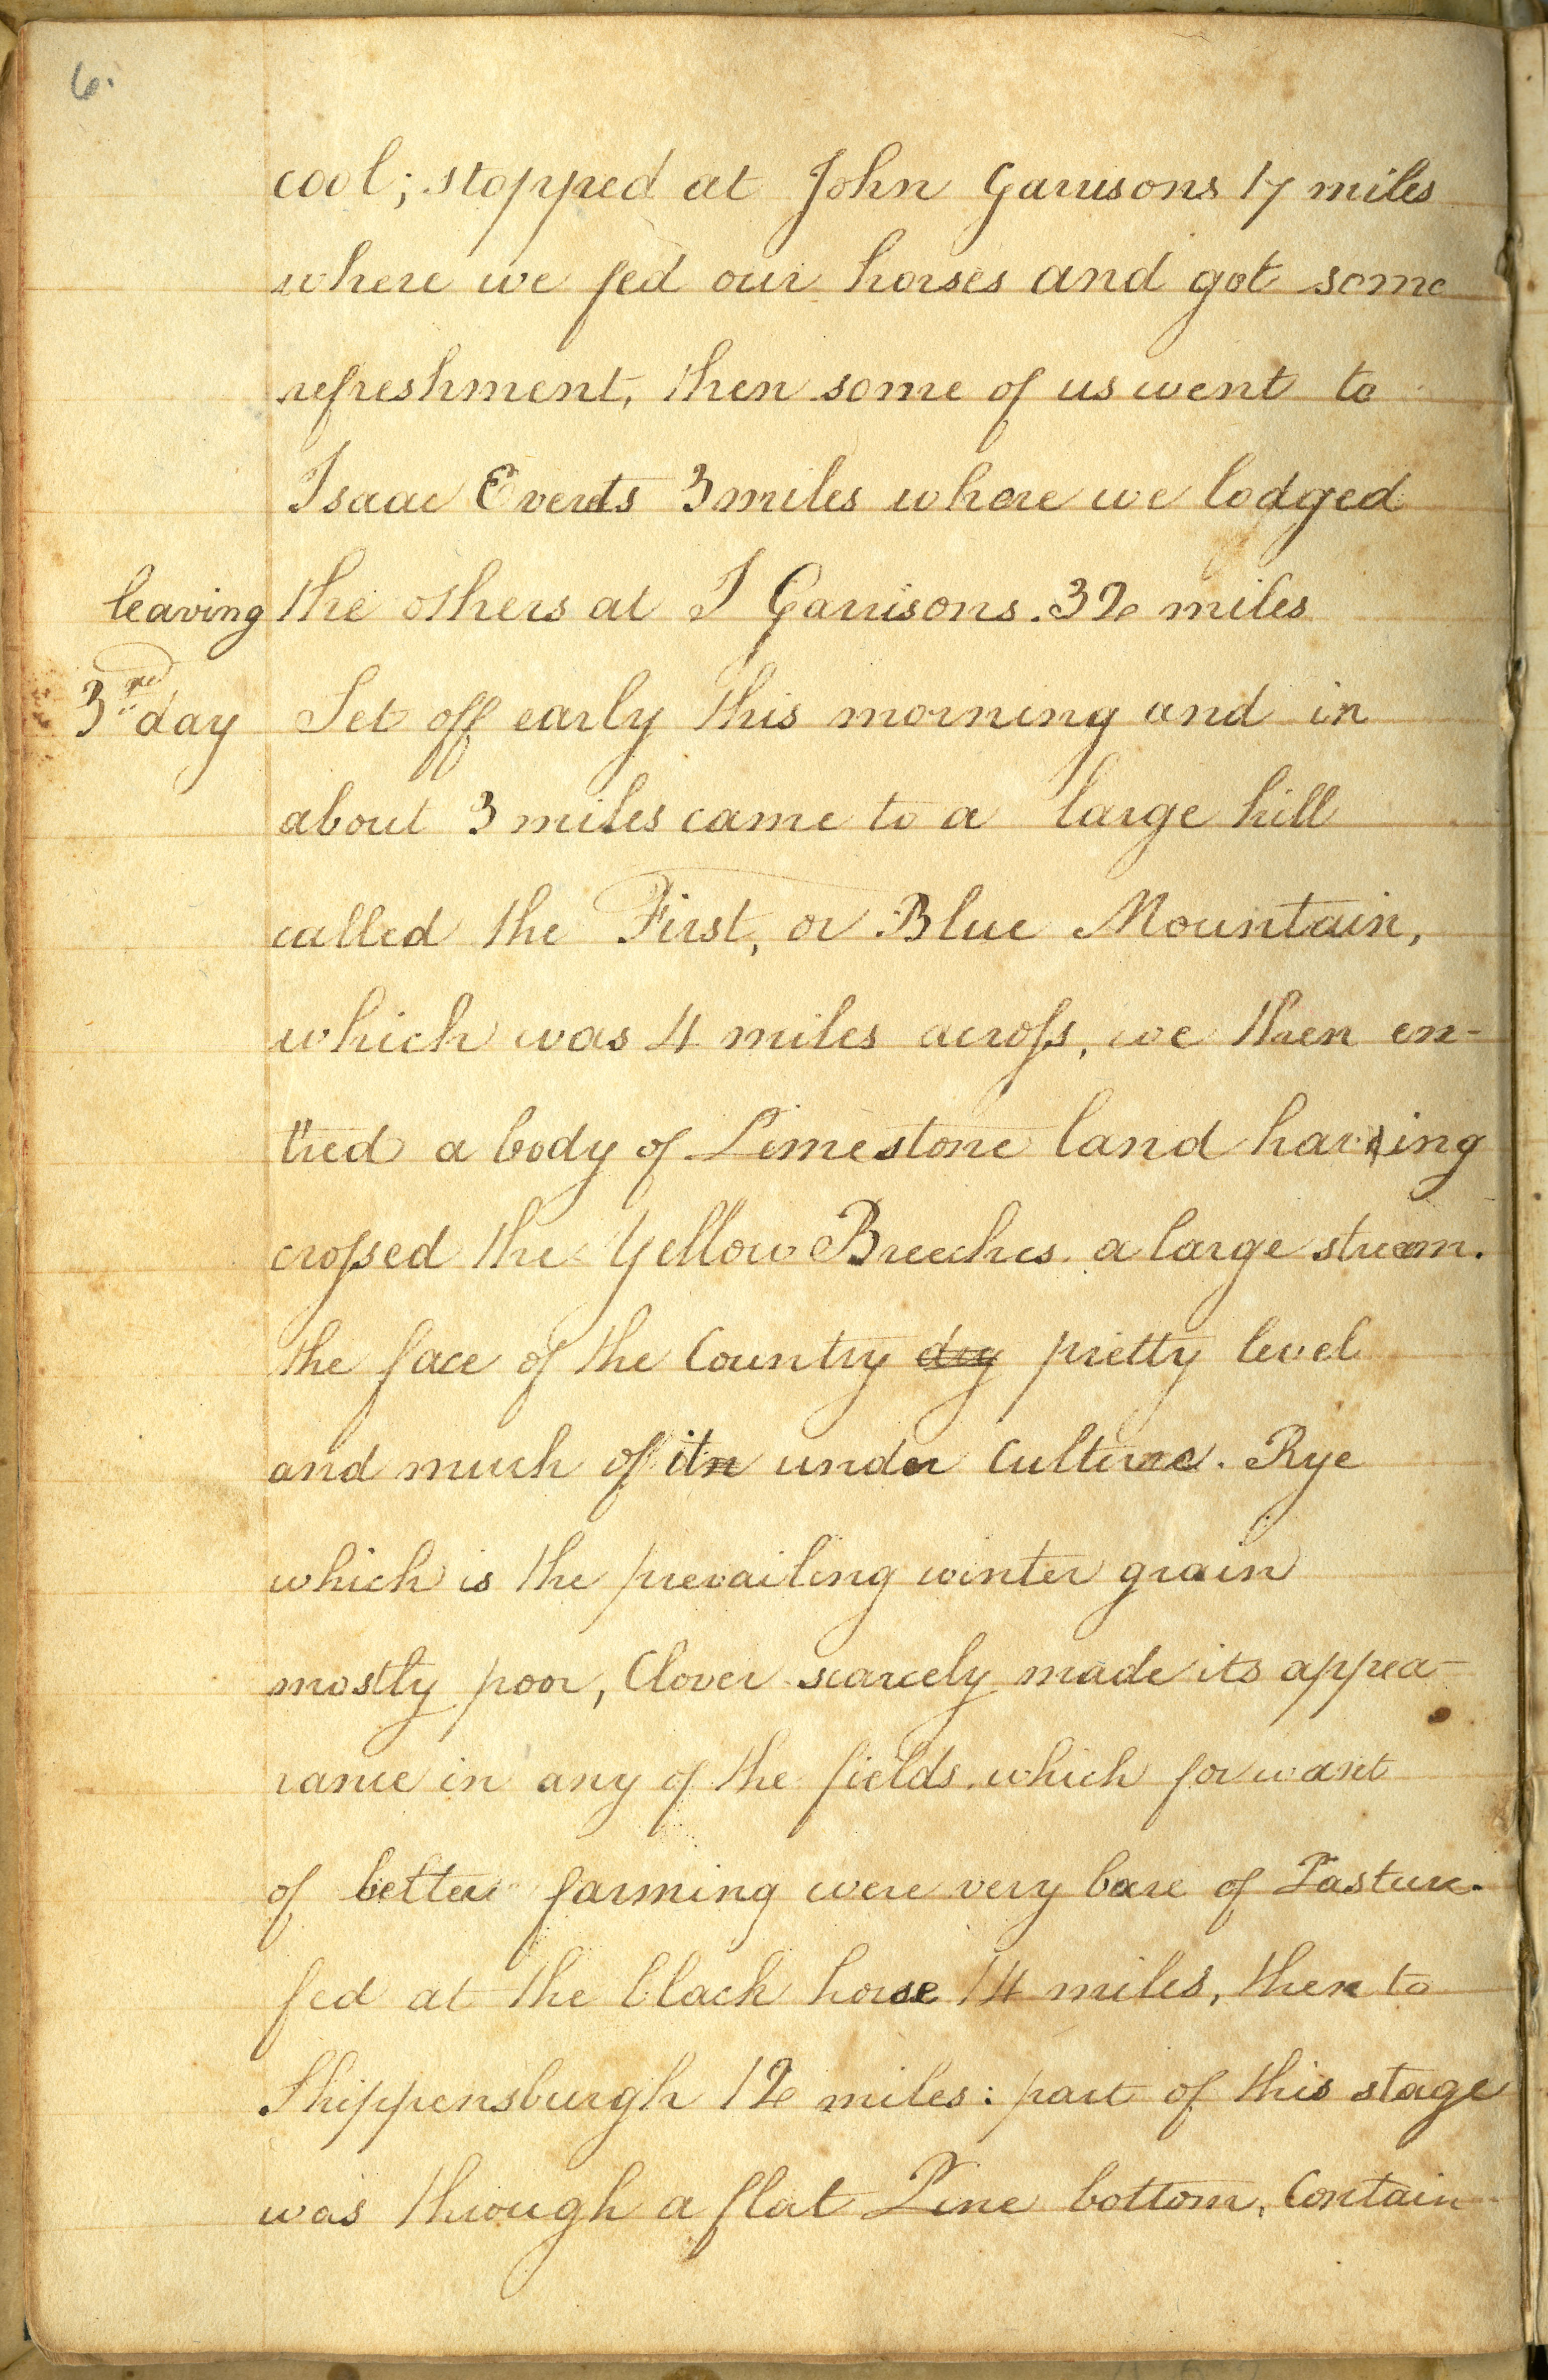 6.
cool; stopped at John Garrisons 17 miles
where we fed our horses and got some
refreshment, then some of us went to
Isaac Everits 3 miles where we lodged
leaving the others at J Garrisons. 32 miles
3rd day Set off early this morning and in
about 3 miles came to a large hill
called the First, or Blue Mountain,
which was 4 miles across, we then en-
tred a body of Limestone land having
crossed the Yellow Breeches a large stream.
the face of the Country dry pretty level
and much of it under Culture. Rye
which is the prevailing winter grain
mostly poor, Clover scarcely made its appea-
rance in any of the fields. which for want
of better farming were very bare of Pasture.
fed at the black horse 14 miles, then to
Shippensburgh 12 miles: part of this stage
was through a flat Pine bottom, Contain